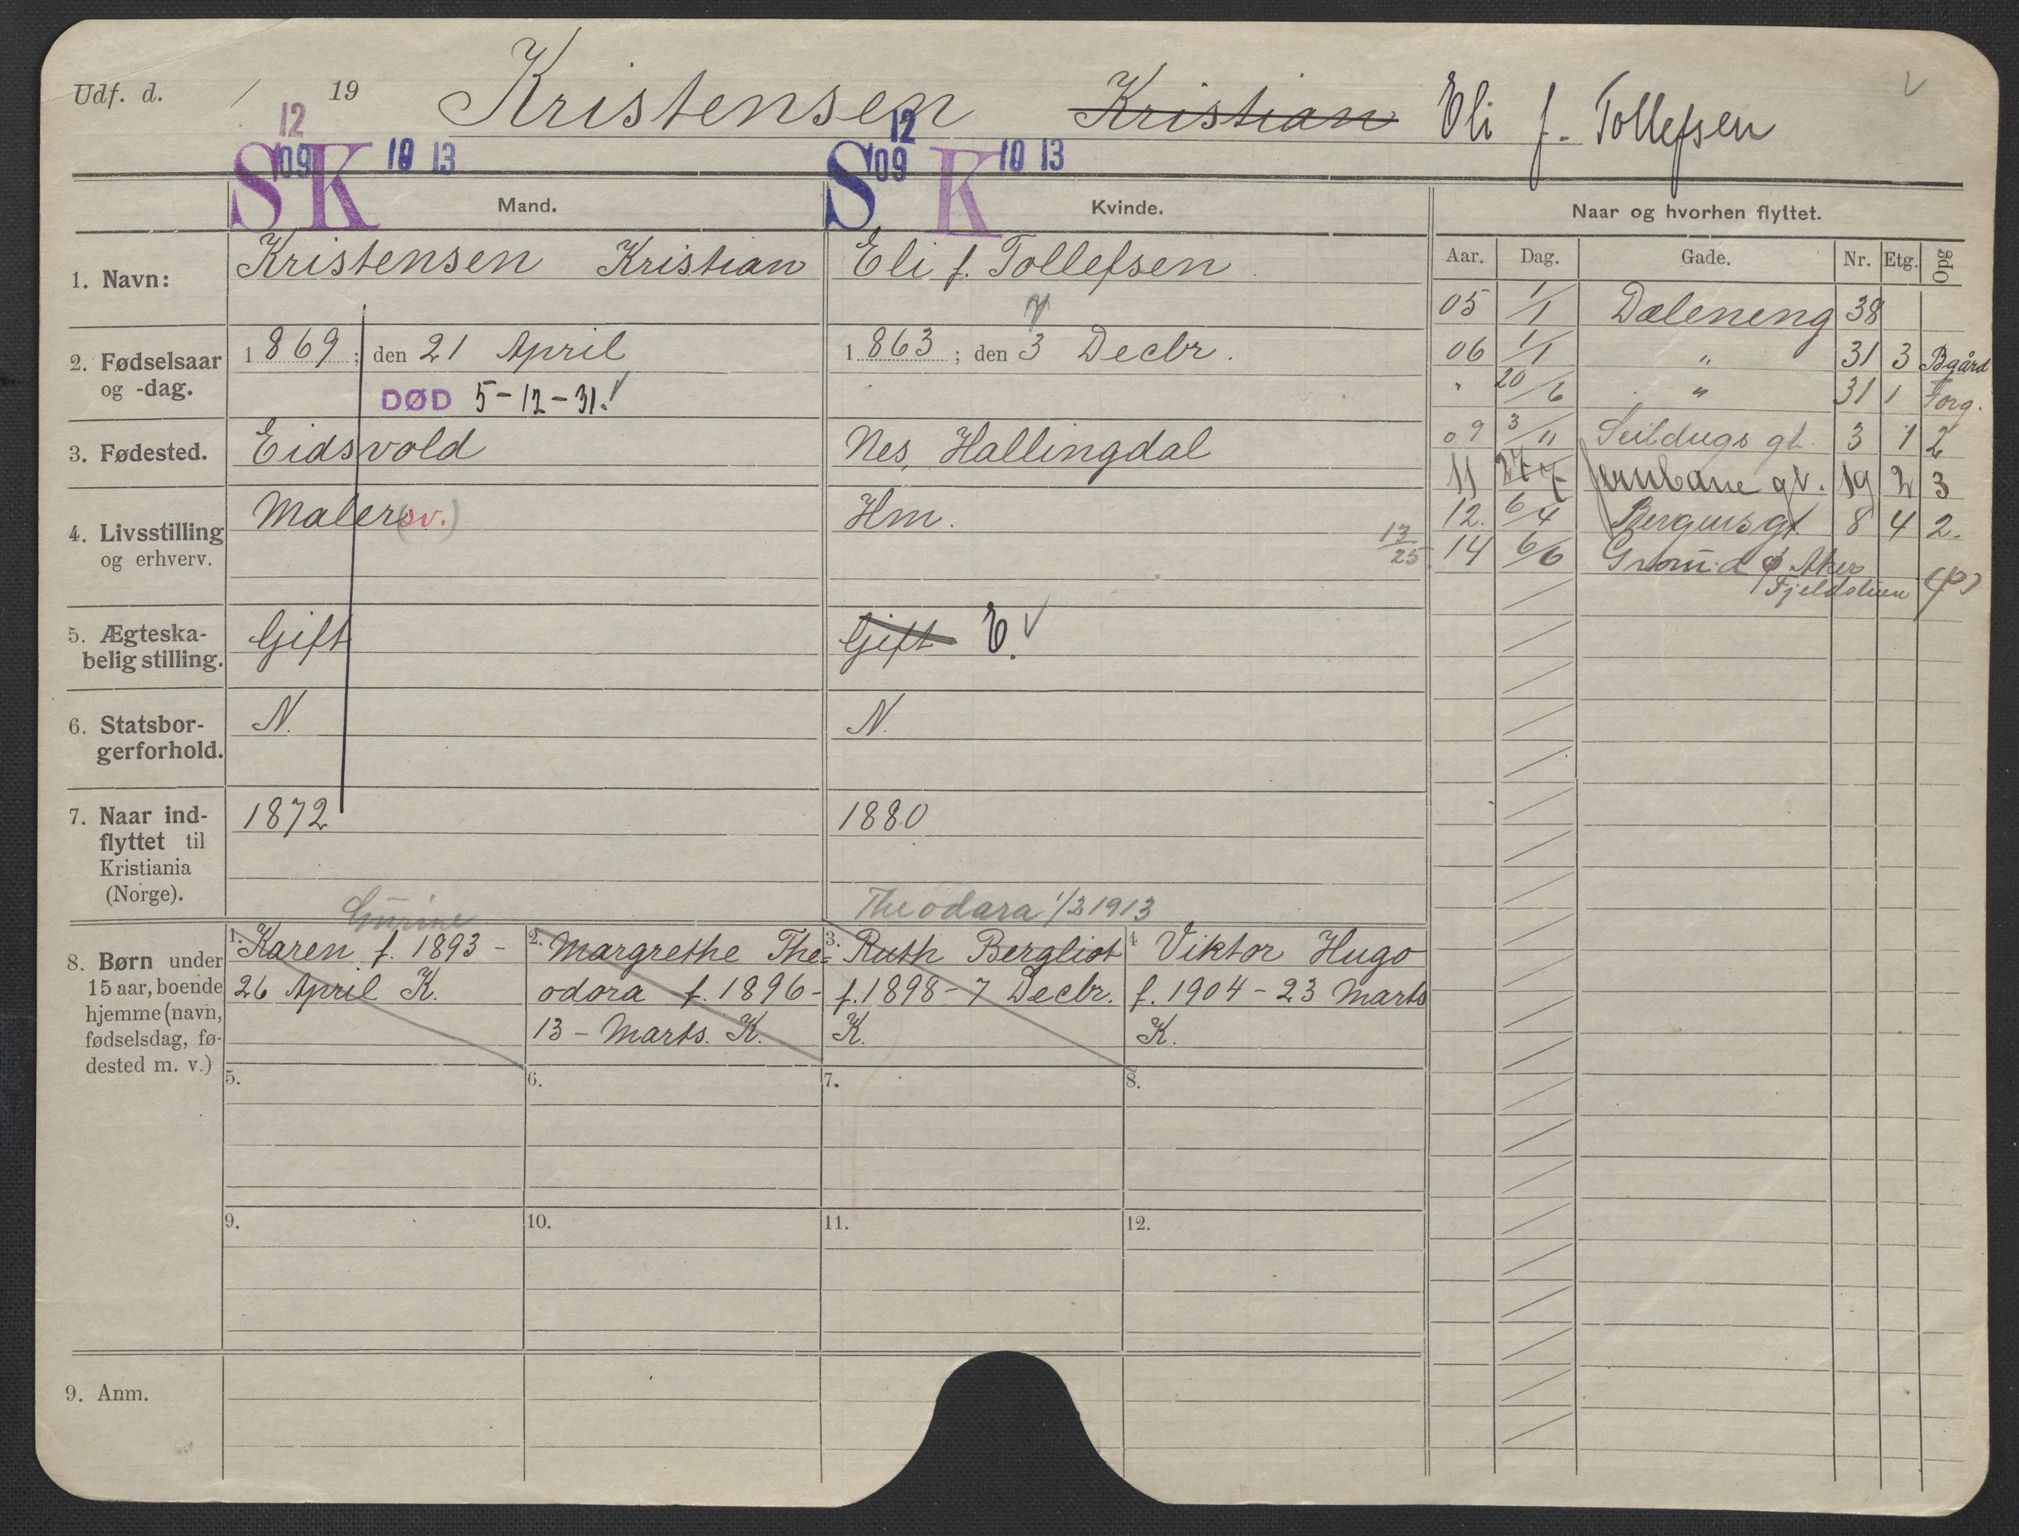 Udf. d. / 19 Kristensen Kristian Eli f. Tollefsen
12 12
SK 09 10 13 S 09 K 10 13
Mand. Kvinde. Naar og hvorhen flyttet.
Aar. Dag. Gade. Nr. Etg. Opg
1. Navn: Kristensen Kristian Eli f. Tollefsen
2. Fødselsaar og -dag.
1869; den 21 April
1863; den 3 Decbr.
7
DØD 5-12-31.
3. Fødested. Eidsvold Nes, Hallingdal
4. Livsstilling og erhverv.
Maler(sv.) Hm.
5. Ægteska-
belig stilling.
Gift Gift E.
6. Statsbor-
gerforhold.
N. N.
7. Naar ind-
flyttet til
Kristiania
(Norge).
1872 1880
05 1/1 Dæleneng 38
06 1/1 " 31 3 Bgård
" 20/6 " 31 1 Forg.
09 3/11 Seildugs gt. 3 1 2
11 27/7 Jernbane gt. 19 2 3
12. 6/4 Bergens gt. 8 4 2.
13/25 14 6/6 Ø Aker
Fjeldstuen (P)
8. Børn under
15 aar, boende
hjemme (navn,
fødselsdag, fø-
dested m. v.)
Theodara 1/2 1913
1. Karen f. 1893 -
26 April K.
2. Margrethe The-
odora f. 1896 -
13 - Marts. K.
3. Ruth Bergliot
f. 1898 - 7 Decbr.
K.
4 Viktor Hugo
f. 1904 - 23 Marts
K.
5. 6. 7. 8.
9. 10. 11. 12.
9. Anm.